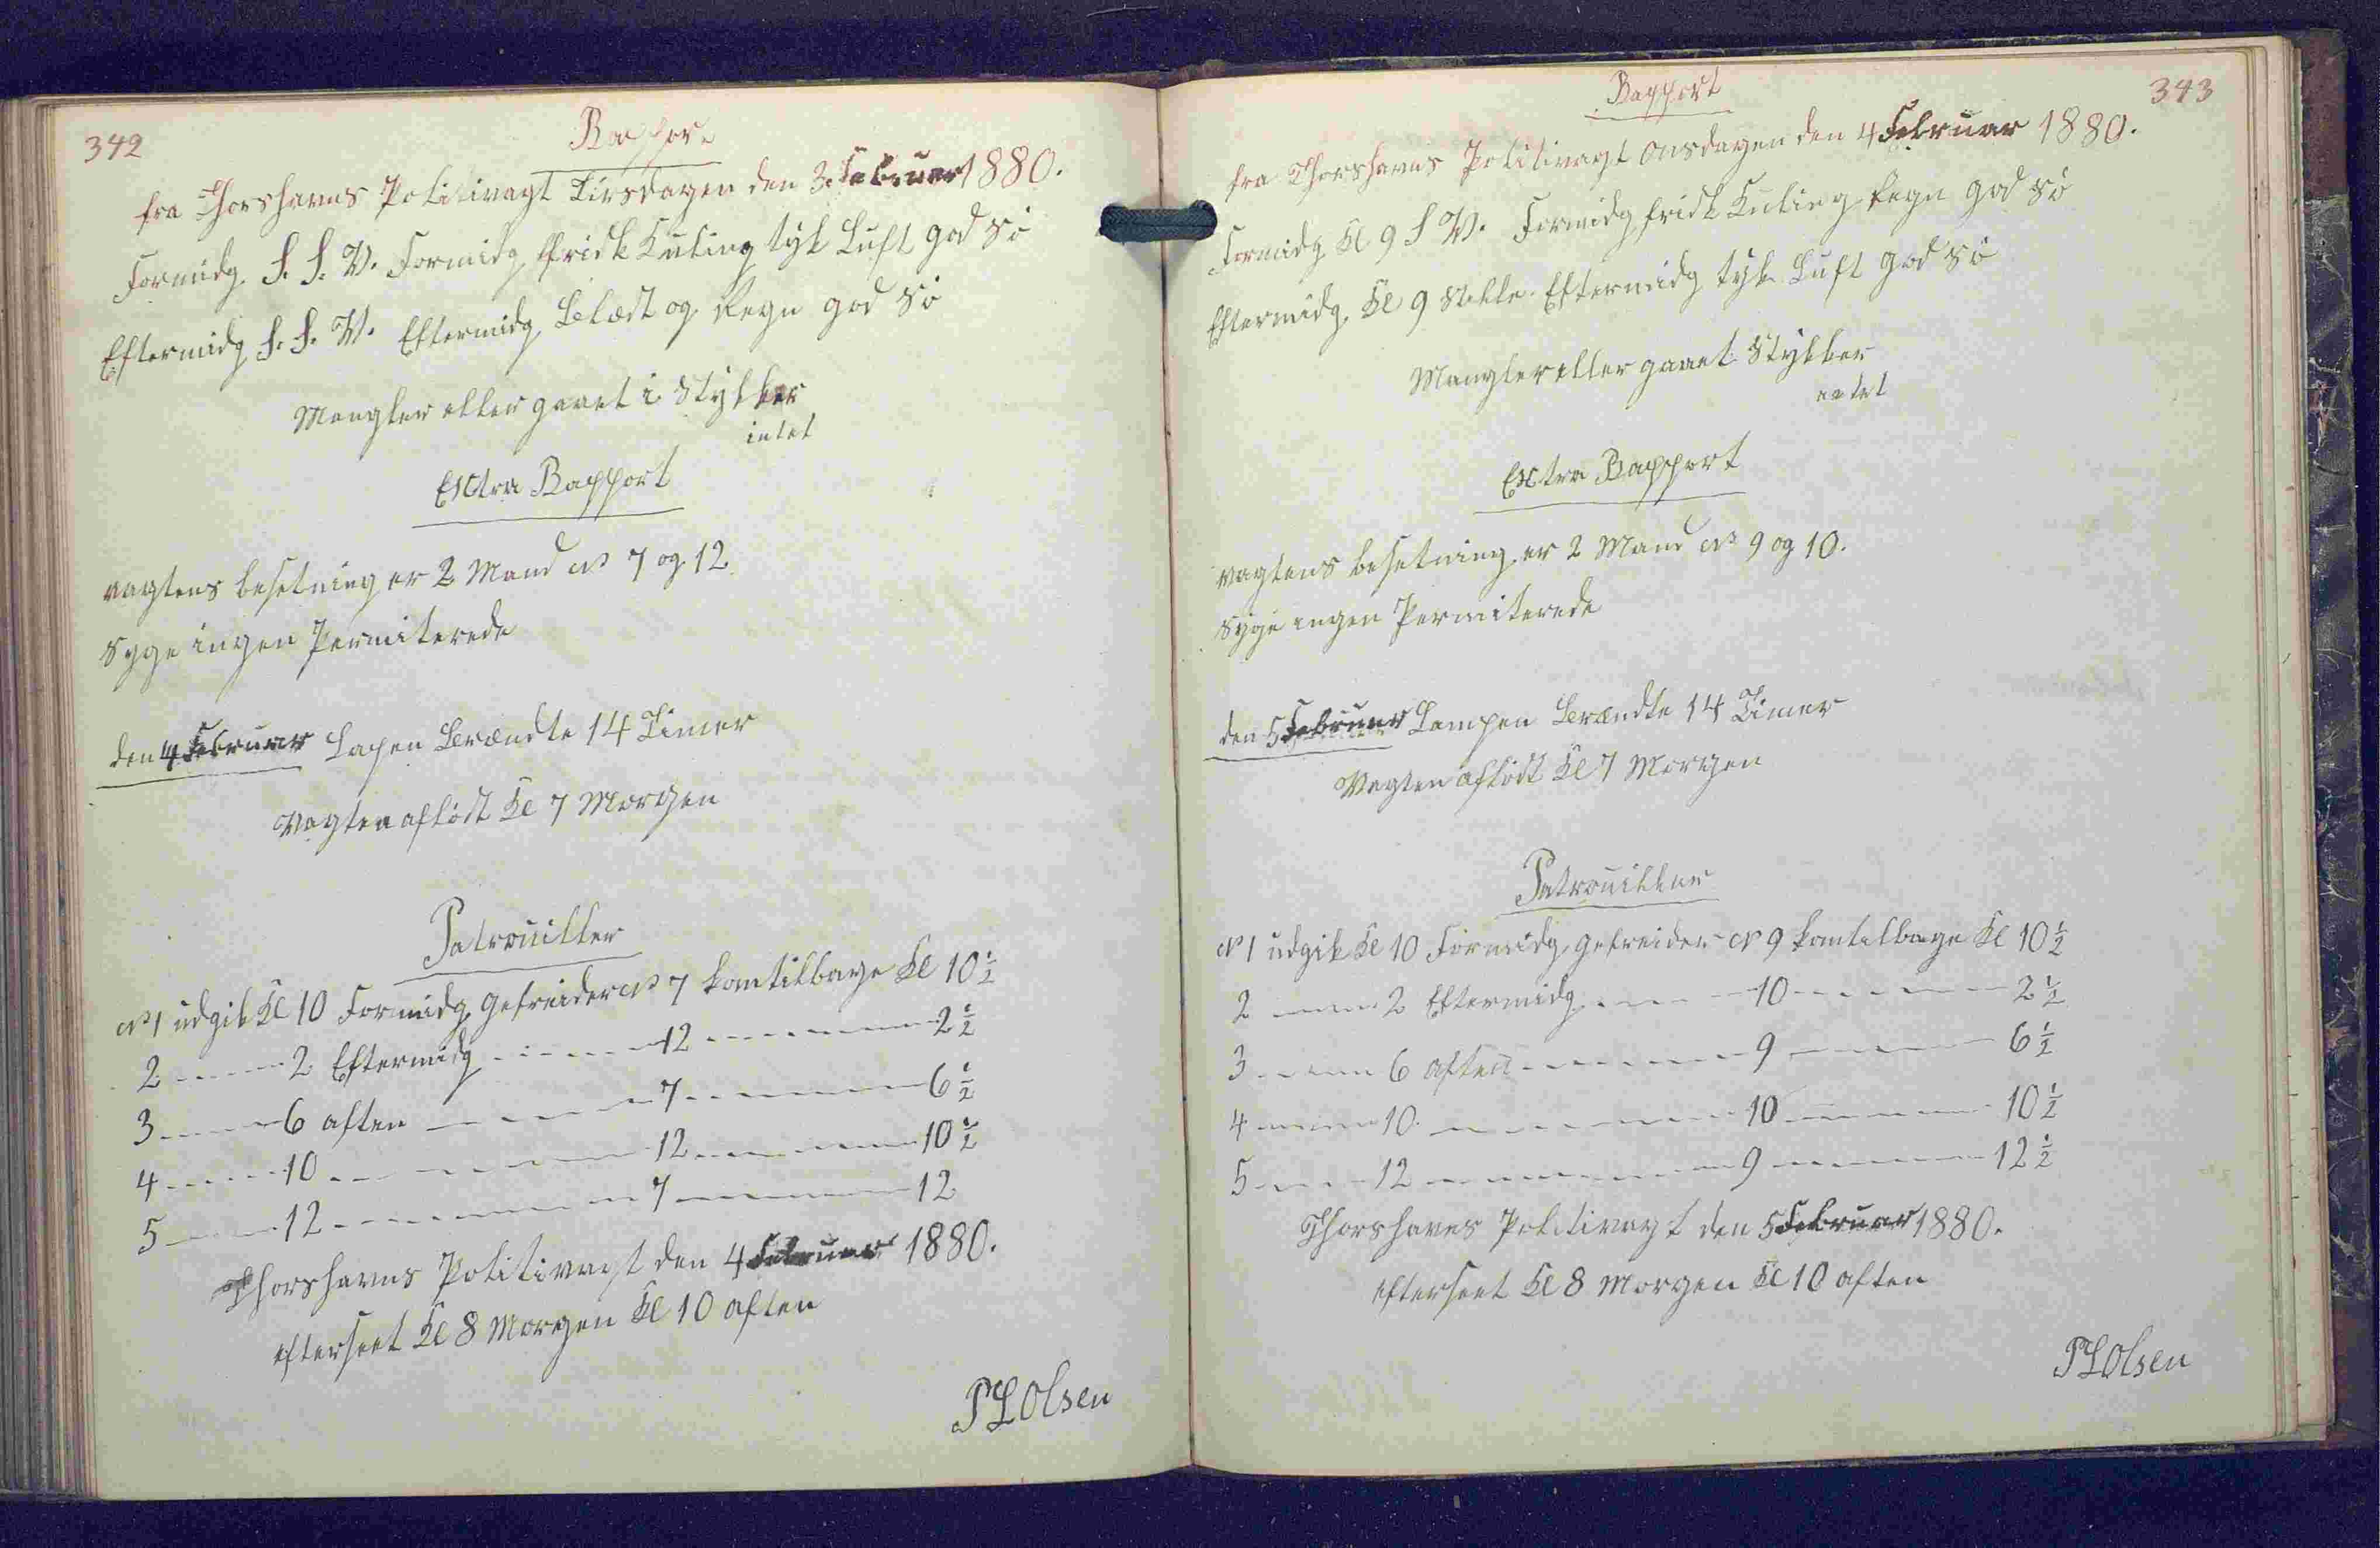 342
Rapport
fra Thorshavns Politivagt Tirsdagen den 3. Februar 1880.
Formidg. S. S. V. Formidg frisk Kuling tyk Luft god Sö
Eftermidg S. S. V. Eftermidg Blæst og Regn god Sö
Mangler eller gaaet i Stykker
intet
Extra Rapport
vagtens besetning er 2 Mand No 7 og 12.
Syge ingen Permiterede
den 4 Februar Lapen Brændte 14 Timer
Vagten aflöst Kl 7 Morgen
Patrouiller
No 1 udgik Kl 10 Formidg. Gefreider No 7 kom tilbage Kl 10 1/2
2 - - - 2 Eftermidg - - - 12 - - - 2 1/2
3 - - - 6 aften - - - 7 - - - 6 1/2
4 - - - 10 - - - 12 - - - 10 1/2
5 - - - 12 - - - 7 - - - 12
Thorshavns Politivagt den 4 Februar 1880.
efterseet Kl 8 Morgen Kl 10 aften
P L Olsen
343
Rapport
fra Thorshavns Politivagt Onsdagen den 4 Februar 1880.
Formidg Kl 9 S V. Formidg frisk Kuling Regn god Sö
Eftermidg. Kl 9 Stille. Eftermidg tyk Luft god Sö
Mangler eller gaaet Stykker
intet
Extra Rapport
vagtens besetning er 2 Mand No 9 og 10.
Syge ingen Permiterede
den 5 Februar Lampen Brændte 14 Timer
Vagten aflöst Kl 7 Morgen
Patrouiller
No 1 udgik Kl 10 Formidg Gefreider No 9 kom tilbage Kl 10 1/2
2 - - - 2 Eftermidg - - - 10 - - - 2 1/2
3 - - - 6 aften - - - 9 - - - 6 1/2
4 - - - 10 - - - 10 - - - 10 1/2
5 - - - 12 - - - 9 - - - 12 1/2
Thorshavns Politivagt den 5 Februar 1880.
efterseet Kl 8 Morgen Kl 10 aften
P L Olsen